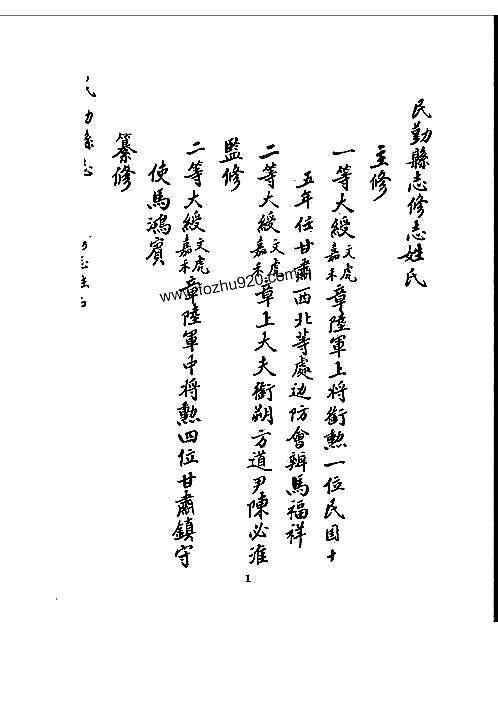 民勤縣志修志姓氏
主修
一等大綬文虎嘉禾章陸軍上將銜勲一位民国十
五年任甘肅西北等處边防會辦馬福祥
二等大綬文虎嘉禾章上大夫銜朔方道尹陳必淮
監修
二等大綬文虎嘉禾章陸軍中将勲四位甘肅鎮守
使馬鴻賓
纂修
1
www.fozhu920.com